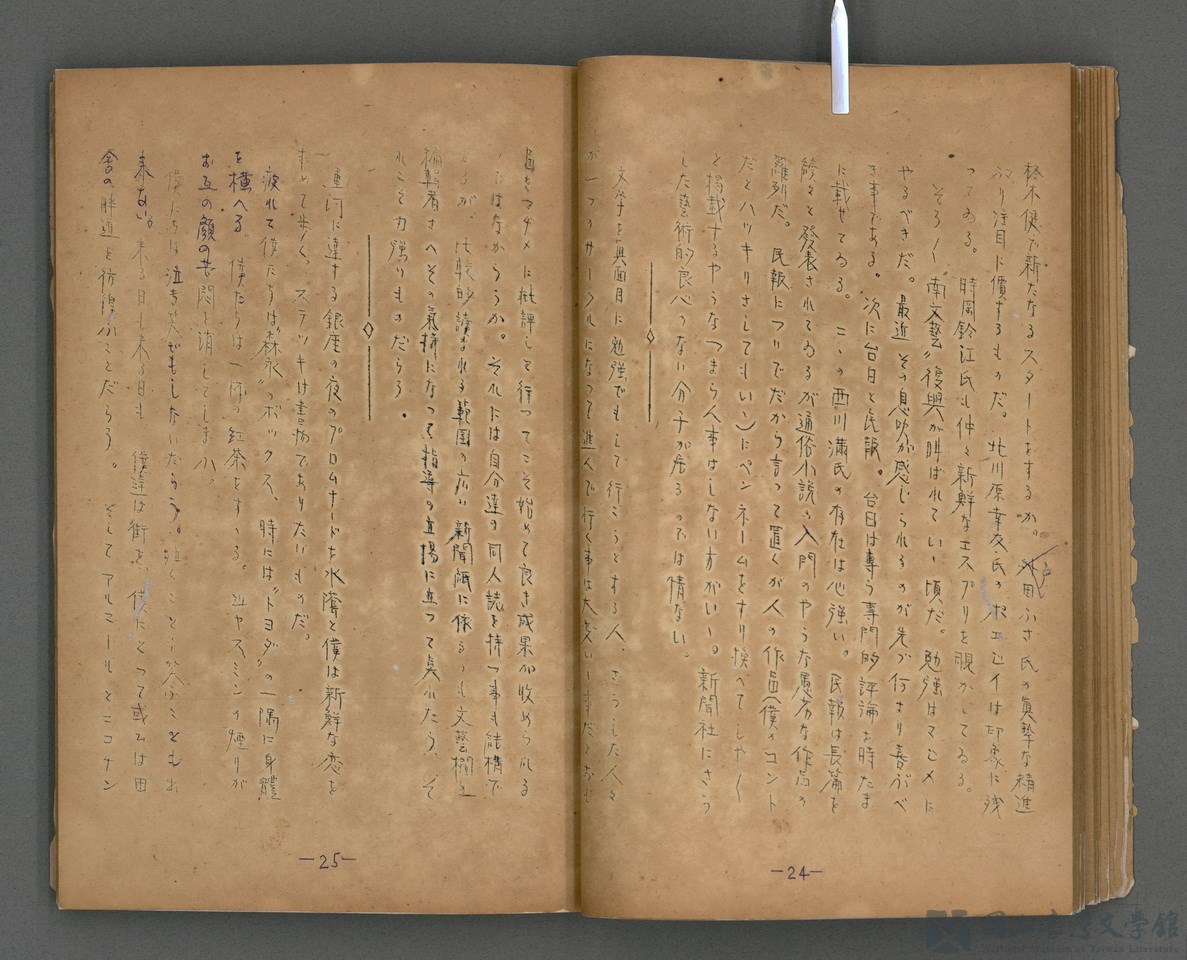 終不便で新たなるスタートをするか。戸田ふさ氏の眞摯な精進
ぶり注目に價するものだ。北川原幸友氏のポエヂイは印象に残
つてゐる。時岡鈴江氏も仲々新鮮なエスプリを覗かしてゐる。
そろ〱“南文藝”復興が叫ばれていい頃だ。勉強はマヂメに
やるべきだ。最近その息吹が感じられるのが先づ何より喜ぶべ
き事である。次に台日と民報。台日は專ら専門的評論を時たま
に載せてゐる。こゝの西川滿氏の存在は心強い。民報は長篇を
続々と發表されてゐるが通俗小説の入門のやうな愚劣な作品の
羅列だ。民報についでだから言つて置くが人の作品(僕のコント
だとハツキリさしてもいい)にペンネームをすり換へてしやく
と掲載するやうなつまらん事はしない方がいい。新聞社にさう
した藝術的良心のない分子が居るのでは情ない。
文学を眞面目に勉強でもして行こうとする人、さうした人々
が一つのサークルになつて進んで行く事は大きい事だと
品をマヂメに批評して行つてこそ始めて良き成果が收められる
のではなからうか。それには自分達の同人誌を持つ事も結構で
あるが、比較的讀まれる範囲の広い新聞紙に依るのも文藝欄の
編輯者さへその氣持になつて指導の立場に立つて呉れたら、そ
れこそ力強いものだらう。
運河に連する銀座の夜のプロムナードを水蔭と僕は新鮮な恋を
求めて歩く、ステツキは書物でありたいものだ。
疲れて僕たちは“森永”のボックス、時には“トヨダ”の一隅に身體
を横へる 僕たちは一杯の紅茶をすゝる。ジヤスミンの煙りが
お互の顔の苦悶を消してしまふ。
僕たちは泣き笑でもしたいだらう。泣くことも笑ふことも出
来ない。来る日も来る日も 僕達は街を、僕にとつて或ひは田
舎の畔道を彷徨ふことだらう。そしてアルミールとコナン
—25—
—24—